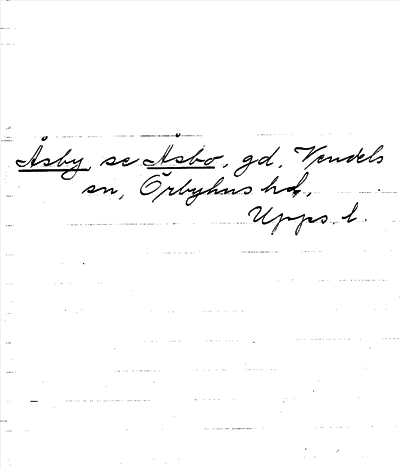 Åsby, se Åsbo, gd, Vendels
sn, Örbyhus hd,
Upps. l.